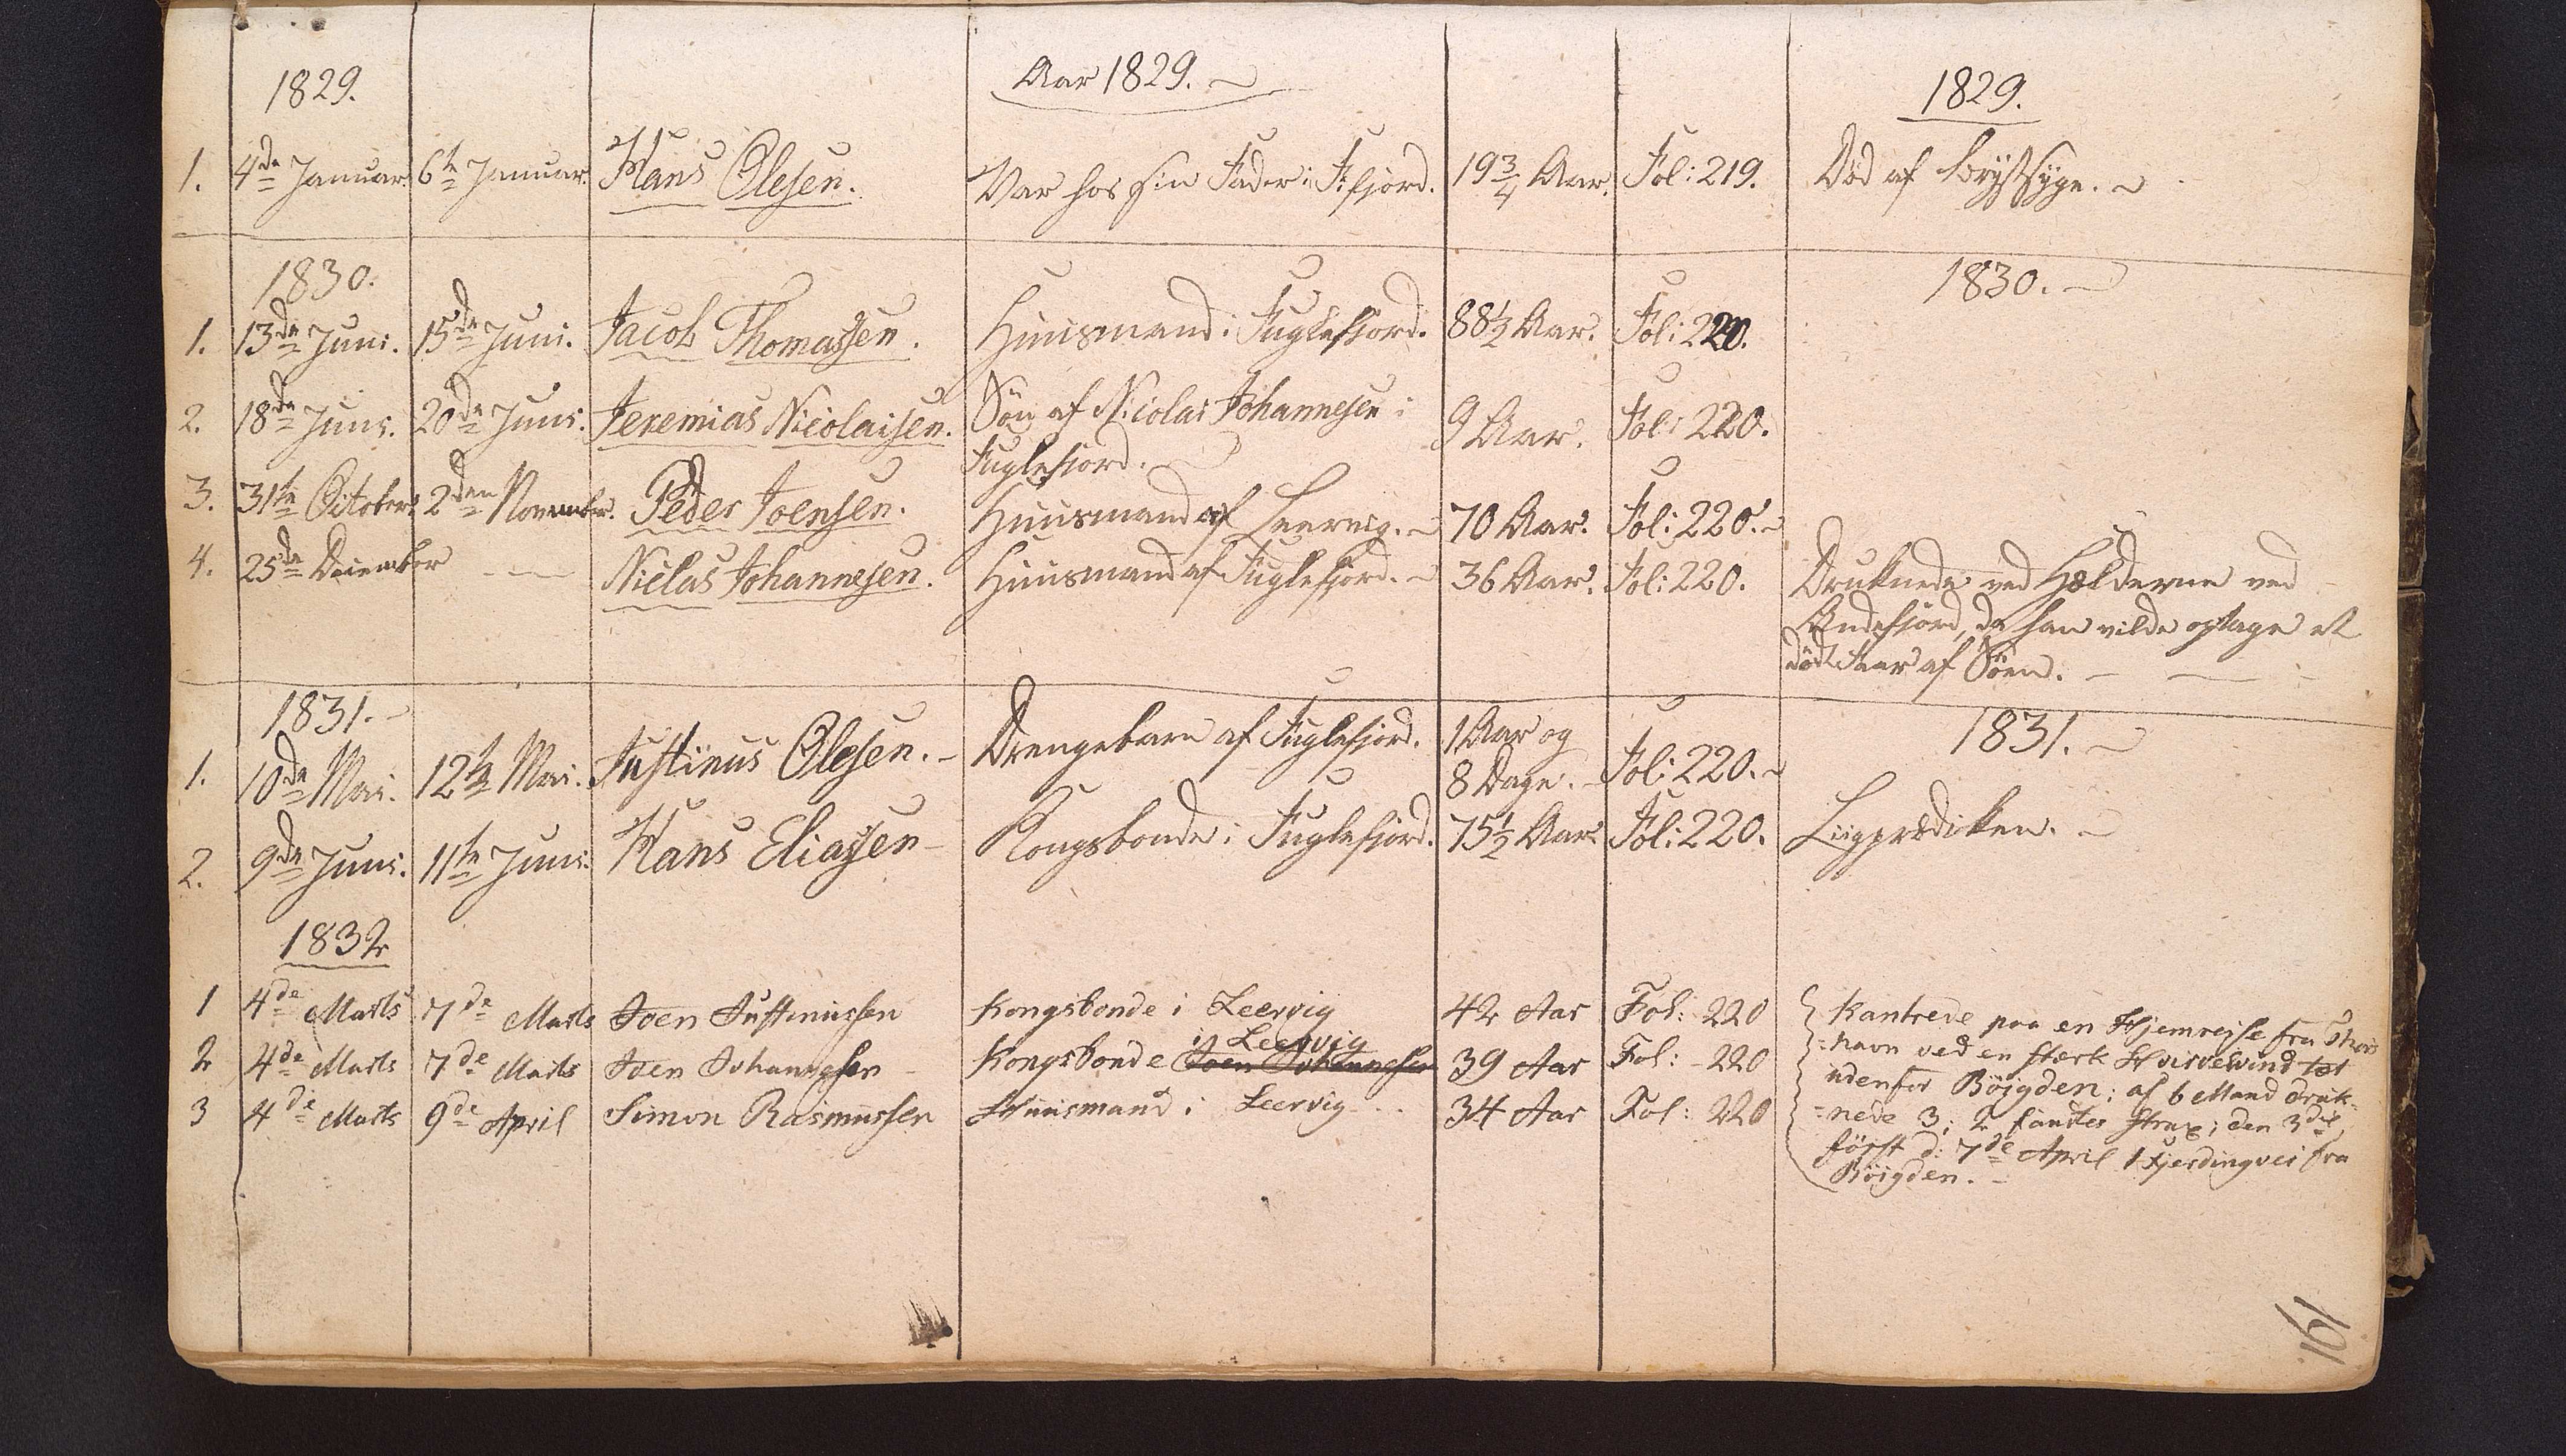 1829. Aar 1829. 1829.
1. 4de Januar. 6te Januar. Hans Olesen. Var hos sin Fader i Ifjord. 19 3/4 Aar. Fol: 219. Död af Brystsyge.
1830. 1830.
1. 13de Juni. 15de Juni. Jacob Thomassen. Huusmand i Fuglefjord. 88½ Aar. Fol: 220.
2. 18de Juni. 20de Juni. Jeremias Nicolaisen. Sön af Nicolai Johannesen i 9 Aar. Fol: 220.
Fuglefjord.
3. 31te October. 2den November. Peder Joensen. Huusmand af Leervig. 70 Aar. Fol: 220.
4. 25de December Niclas Johannesen. Huusmand af Fuglefjord. 36 Aar. Fol: 220. Druknede ved Hælderne ved
Andefjord, da han vilde optage et
dödt Faar af Söen.
1831. 1831.
1. 10de Mai. 12te Mai. Justinus Olesen. Drengebarn af Fuglefjord. 1 Aar og
8 Dage. Fol: 220.
2. 9de Juni. 11te Juni. Hans Eliassen Kongsbonde i Fuglefjord. 75½ Aar. Fol: 220. Liigprædiken.
1832
1 4de Marts 7de Marts Joen Justinussen Kongsbonde i Leervig 42 Aar Fol: 220
2 4de Marts 7de Marts Joen Johannesen Kongsbonde Joen Johannesen i Leervig 39 Aar Fol: 220
3 4de Marts 9de April Simon Rasmussen Huusmand i Leervig 34 Aar Fol: 220
Kantrede paa en Hjemrejse fra Thors
=havn ved en stærk Hvirvelvind tæt
udenfor Böigden; af 6 Mand druk-
=nede 3; 2 fandtes strax; den 3die
först d: 7de April 1 Fjerdingvei fra
Böigden.
161